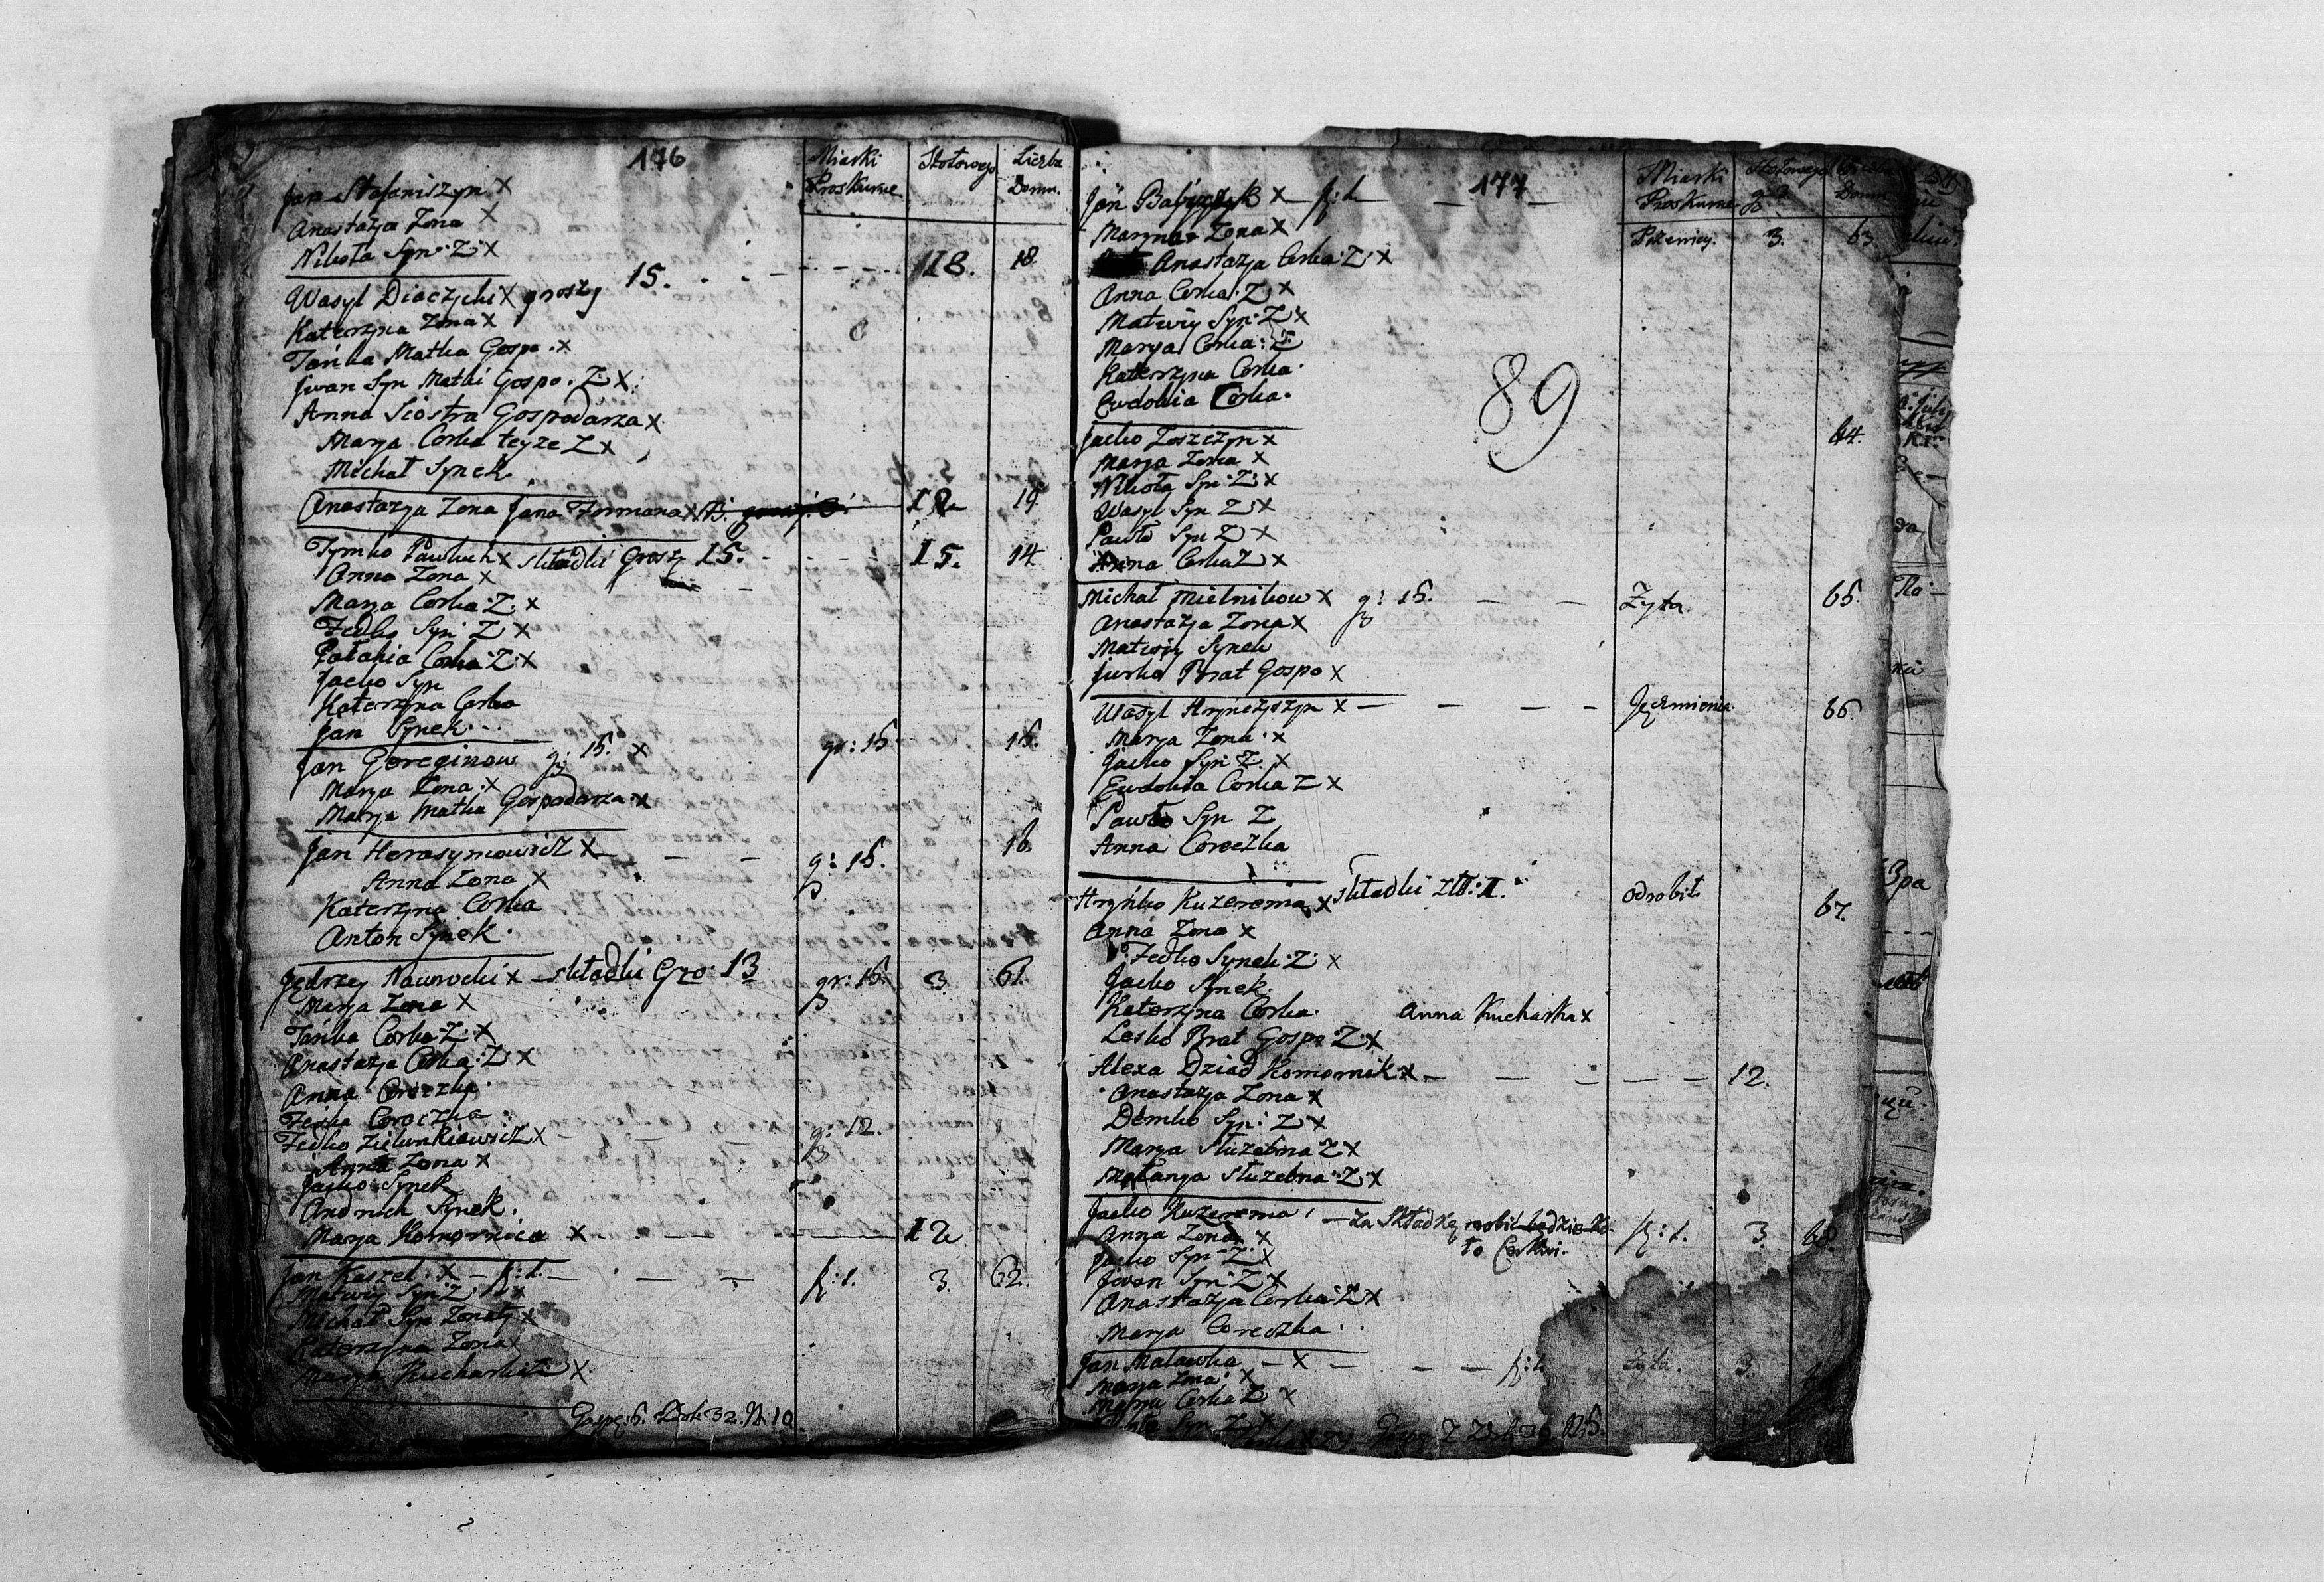 176
Miarki Stołowego Liczba
Proskurne Domu.
Jan Stefaniszyn X
Anastazja Zona X
Nikoła Syn: Z: X
118. 18.
Wasyl Diaczyki X groszy 15.
Katerzyna Zona X
Tańka Matka Gospo. X
Jwan Syn Matki Gospo. Z: X
Anna Siostra Gospodarza X
Marya Corka teyze Z X
Michał Synek
Anastazja Zona Jana Formana X 12 19
Tymko Pawluch X składki Groszy 15. 15. 14
Anna Zona X
Marya Corka: Z: X
Fedko Syn: Z X
Pałahia Corka: Z: X
Jacko Syn
Katerzyna Corka
Jan Synek
Jan Gereginow g: 15. X gr: 15 15.
Marya Zona: X
Marya Matka Gospodarza: X
Jan Herasymowicz X g: 15. 16.
Anna Zona X
Katerzyna Corka
Anton Synek
Jędrzey Nawrocki X składki Gro: 13 gr: 15. 3 61.
Marya Zona X
Tańka Corka: Z: X
Anastazja Corka: Z: X
Anna Coreczka
Coreczka
Fedko Zielunkiewicz X g: 12.
Anna Zona X
Jacko Synek
Andruch Synek.
Marya Komornica X 12
Jan Kaszel: X f: 1. f: 1. 3. 62.
Matwiy Syn: Z: X
Michał Syn Zonaty X
Katerzyna Zona X
Marya Kucharka: Z X
177
Miarki Stołowego
Proskurne Domu
Jan X f: 1. Pszenicy. 3. 63.
Maryna Zona X
Anastazja Corka: Z: X
Anna Corka: Z X
Matwiy Syn: Z X
Marya Corka: Z
Katerzyna Corka
Ewdokia Corka.
89
Jacko Zoszczyn X 64.
Marya Zona X
Nikoła Syn: Z: X
Wasyl Syn Z X
Pawło Syn Z X
Anna Corka Z X
Michał Mielnikow X g: 15. Zyta 65.
Anastazja Zona X
Matwiy Synek
Jurko Brat Gospo X
Wasyl Hrynczyszyn X Jęczmienia 66.
Marya Zona: X
Jacko Syn Z. X
Ewdokia Corka Z X
Pawło Syn Z
Anna Coreczka
Hryńko Kuzerema X składki złł: 1. odrobił 67.
Anna Zona X
Fedko Synek: Z: X
Jacko Synek.
Katerzyna Corka. Anna Kucharka X
Lesko Brat Gospo Z: X
Alexa Dziad Komornik X 12.
Anastazja Zona X
Demko Syn: Z X
Marya Służebna Z X
Małanya Służebna: Z: X
Jacko Kuzerema, — za Składkę robić będzie Ko- f: 1. 3. 68.
Anna Zona X to Cerkwi.
Jacko Syn Z. X
Jwan Syn: Z X
Anastazja Corka Z X
Marya Coreczka
Jan Malawka X Zyta. 3.
Marya Zona: X
Marya Corka Z X
Syn Z X